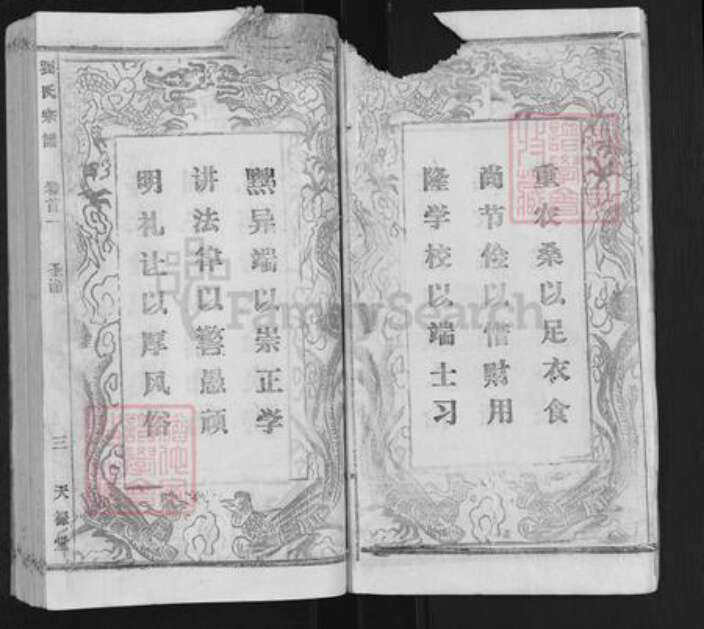 重农桑以足衣食
尚节俭以惜财用
隆学校以端士习
黜异端以崇正学
讲法律以警愚顽
明礼让以厚风俗
氏宗谱 卷首一 圣谕 三 天禄堂
FamilySearch